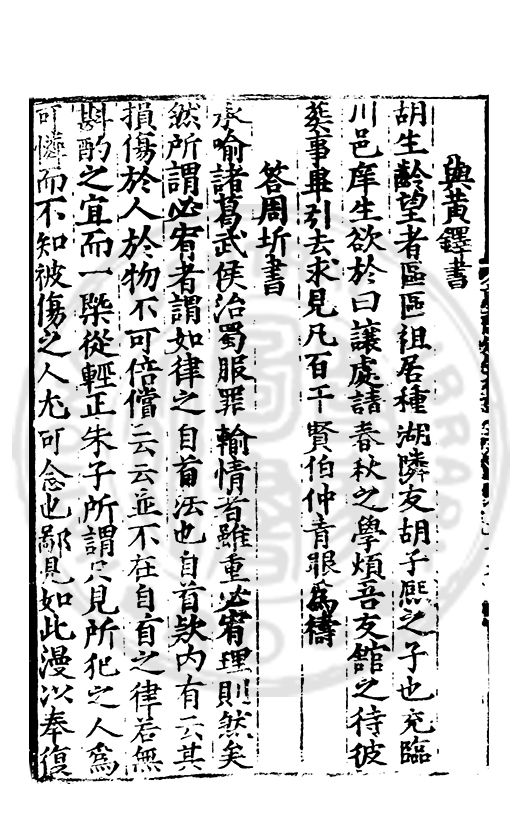 與黃鐸書
胡生齡望者區區祖居種湖隣友胡子熙之子也充臨
川邑庠生欲於曰讓處請春秋之學煩吾友館之待彼
葬事畢引去求見凡百干賢伯仲青眼爲禱
答周圻書
承喻諸葛武侯治蜀服罪輸情者雖重必宥理則然矣
然所謂必宥者謂如律之自首法也自首欵内有云其
損傷於人於物不可倍償云云並不在自首之律若無
斟酌之宜而一槩從輕正朱子所謂只見所犯之人爲
可憐而不知被傷之人尤可念也鄙見如此漫以奉復